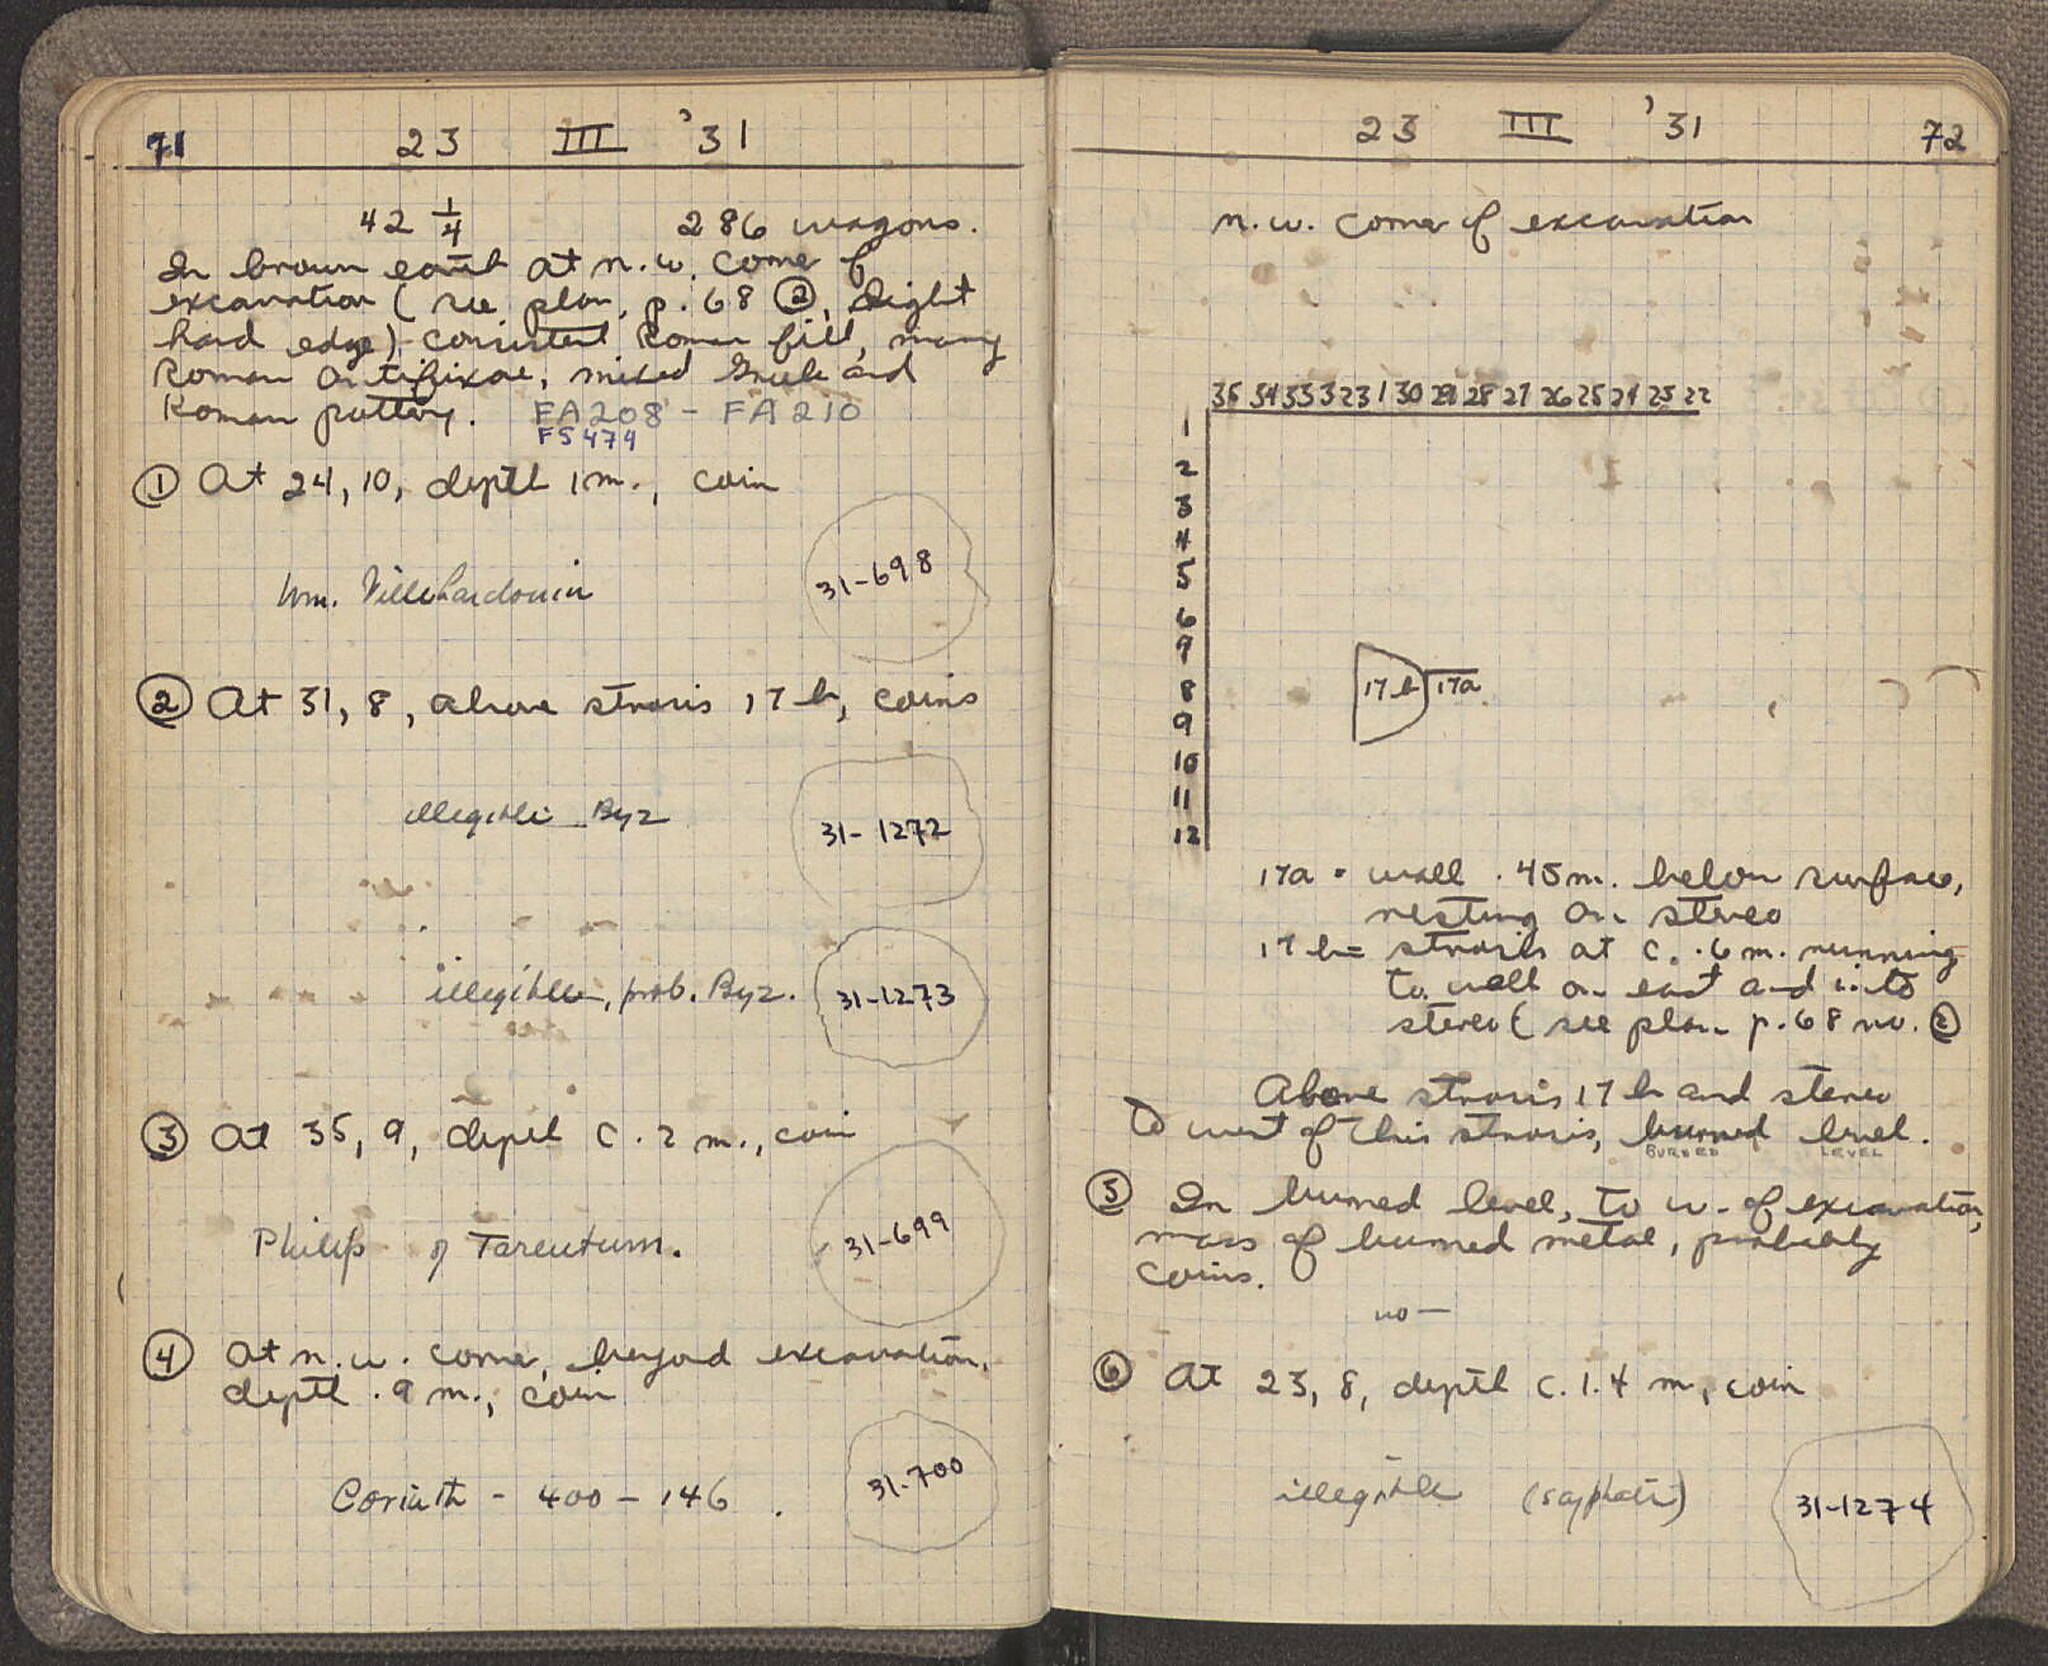 71 23 III '31
42 1/4 286 wagons.
In brown earth at n.w. corner of
excavation (see plan, p. 68 ②, slight
hard edge) - consistent Roman fill, many
Roman antifixae, mixed Greek and
Roman pottery. FA 208 - FA 210
FS 474
① At 24, 10, depth 1 m., coin
Wm. Villehardouin 31-698
② At 31, 8, above strosis 17 b, coins
illegible Byz 31-1272
illegible, prob. Byz. 31-1273
③ At 35, 9, depth c. 2 m., coin
Philip of Tarentum. 31-699
④ At n.w. corner, beyond excavation,
depth .9 m., coin
Corinth - 400 - 146. 31-700
23 III '31 72
n.w. corner of excavation
35 34 33 32 31 30 29 28 27 26 25 24 23 22
1
2
3
4
5
6
9
8
9
10
11
12
17 b 17a
17a = wall .45 m. below surface,
resting on stereo
17 b = strosis at c. .6 m. running
to wall on east and into
stereo (see plan p. 68 no. ②
Above strosis 17 b and stereo
to west of this strosis, burned level.
BURNED LEVEL
⑤ In burned level, to w. of excavation,
mass of burned metal, probably
coins.
no —
⑥ At 23, 8, depth c. 1.4 m, coin
illegible 31-1274